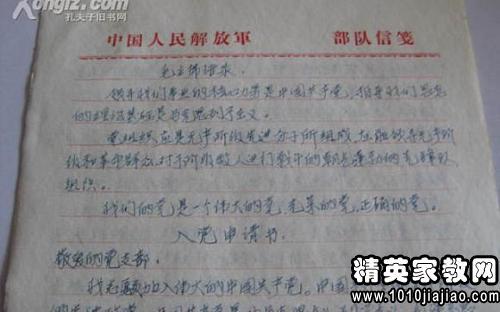 Kongfz.com
孔夫子旧书网
中国人民解放軍 部队信笺
毛主席语录.
领导我们事业的核心力量是中国共产党，指导我们思想
的理论基础是马克思列宁主义。
党组织应是无产阶级先进分子所组成，应能领导无产阶
级和革命群众对于阶级敌人进行战斗的朝气蓬勃的先锋队
组织。
我们的党是一个伟大的党，光荣的党，正确的党。
入党申请书.
敬爱的党支部：
我志愿加入伟大的中国共产党。中国
精英家教网
www.1010jiajiao.com